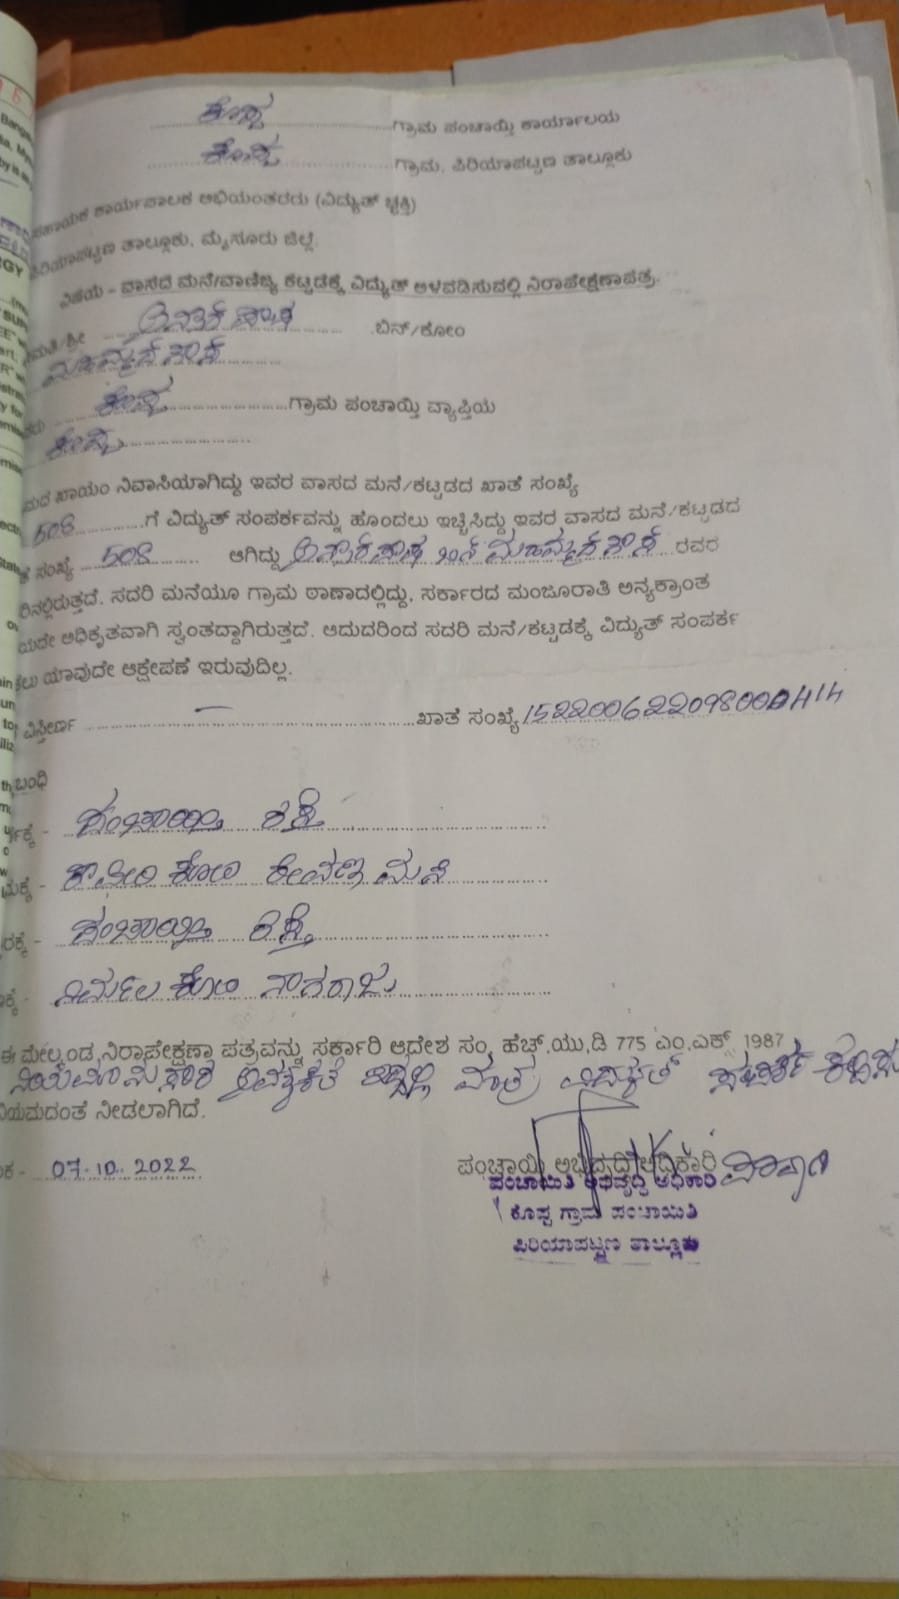 ಕೊಪ್ಪ ಗ್ರಾಮ ಪಂಚಾಯ್ತಿ ಕಾರ್ಯಾಲಯ
ಕೊಪ್ಪ ಗ್ರಾಮ, ಪಿರಿಯಾಪಟ್ಟಣ ತಾಲ್ಲೂಕು
ಸಹಾಯಕ ಕಾರ್ಯಪಾಲಕ ಅಭಿಯಂತರರು (ವಿದ್ಯುತ್
ಪಿರಿಯಾಪಟ್ಟಣ ತಾಲ್ಲೂಕು, ಮೈಸೂರು ಜಿಲ್ಲೆ.
ವಿಷಯ - ವಾಸದ ಮನೆ/ವಾಣಿಜ್ಯ ಕಟ್ಟಡಕ್ಕೆ ವಿದ್ಯುತ್ ಅಳವಡಿಸುವಲ್ಲಿ ನಿರಾಪೇಕ್ಷಣಾಪತ್ರ.
ಮತಿ/ಶ್ರೀ ಬಿನ್/ಕೋಂ
ರು ಕೊಪ್ಪ ಗ್ರಾಮ ಪಂಚಾಯ್ತಿ ವ್ಯಾಪ್ತಿಯ
ಕೊಪ್ಪ
ಮದ ಖಾಯಂ ನಿವಾಸಿಯಾಗಿದ್ದು ಇವರ ವಾಸದ ಮನೆ/ಕಟ್ಟಡದ ಖಾತೆ ಸಂಖ್ಯೆ
508 ಗೆ ವಿದ್ಯುತ್ ಸಂಪರ್ಕವನ್ನು ಹೊಂದಲು ಇಚ್ಛಿಸಿದ್ದು ಇವರ ವಾಸದ ಮನೆ/ಕಟ್ಟಡದ
ತೆ ಸಂಖ್ಯೆ 508 ಆಗಿದ್ದು ಬಿನ್ ರವರ
ರಿನಲ್ಲಿರುತ್ತದೆ. ಸದರಿ ಮನೆಯೂ ಗ್ರಾಮ ಠಾಣಾದಲ್ಲಿದ್ದು, ಸರ್ಕಾರದ ಮಂಜೂರಾತಿ ಅನ್ಯಕ್ರಾಂತ
ಯದೇ ಅಧಿಕೃತವಾಗಿ ಸ್ವಂತದ್ದಾಗಿರುತ್ತದೆ. ಆದುದರಿಂದ ಸದರಿ ಮನೆ/ಕಟ್ಟಡಕ್ಕೆ ವಿದ್ಯುತ್ ಸಂಪರ್ಕ
ಲು ಯಾವುದೇ ಆಕ್ಷೇಪಣೆ ಇರುವುದಿಲ್ಲ.
ವಿಸ್ತೀರ್ಣ — ಖಾತೆ ಸಂಖ್ಯೆ
ಬಂಧಿ
ರ್ವಕ್ಕೆ - ಪಂಚಾಯ್ತಿ ರಸ್ತೆ
ಮಕ್ಕೆ - ಕಾವೇರಿ ಕೋಂ ಮನೆ
ರಕ್ಕೆ - ಪಂಚಾಯ್ತಿ ರಸ್ತೆ
ಕ್ಕೆ - ನಿರ್ಮಲ ಕೋಂ ನಾಗರಾಜು
ಈ ಮೇಲ್ಕಂಡ ನಿರಾಪೇಕ್ಷಣಾ ಪತ್ರವನ್ನು ಸರ್ಕಾರಿ ಆದೇಶ ಸಂ, ಹೆಚ್.ಯು.ಡಿ 775 ಎಂ.ಎಕ್ಸ್ 1987
ನಿಯಮಾನುಸಾರ ಅವಶ್ಯಕತೆ ಇದ್ದಲ್ಲಿ ಮಾತ್ರ ವಿದ್ಯುತ್ ಸಂಪರ್ಕ
ನಿಯಮದಂತೆ ನೀಡಲಾಗಿದೆ.
ಕ - 07.10.2022 ಪಂಚಾಯ್ತಿ ಅಭಿವೃದ್ಧಿ ಅಧಿಕಾರಿ
ಪಂಚಾಯಿತಿ ಅಭಿವೃದ್ಧಿ ಅಧಿಕಾರಿ
ಕೊಪ್ಪ ಗ್ರಾಮ ಪಂಚಾಯಿತಿ
ಪಿರಿಯಾಪಟ್ಟಣ ತಾಲ್ಲೂಕು